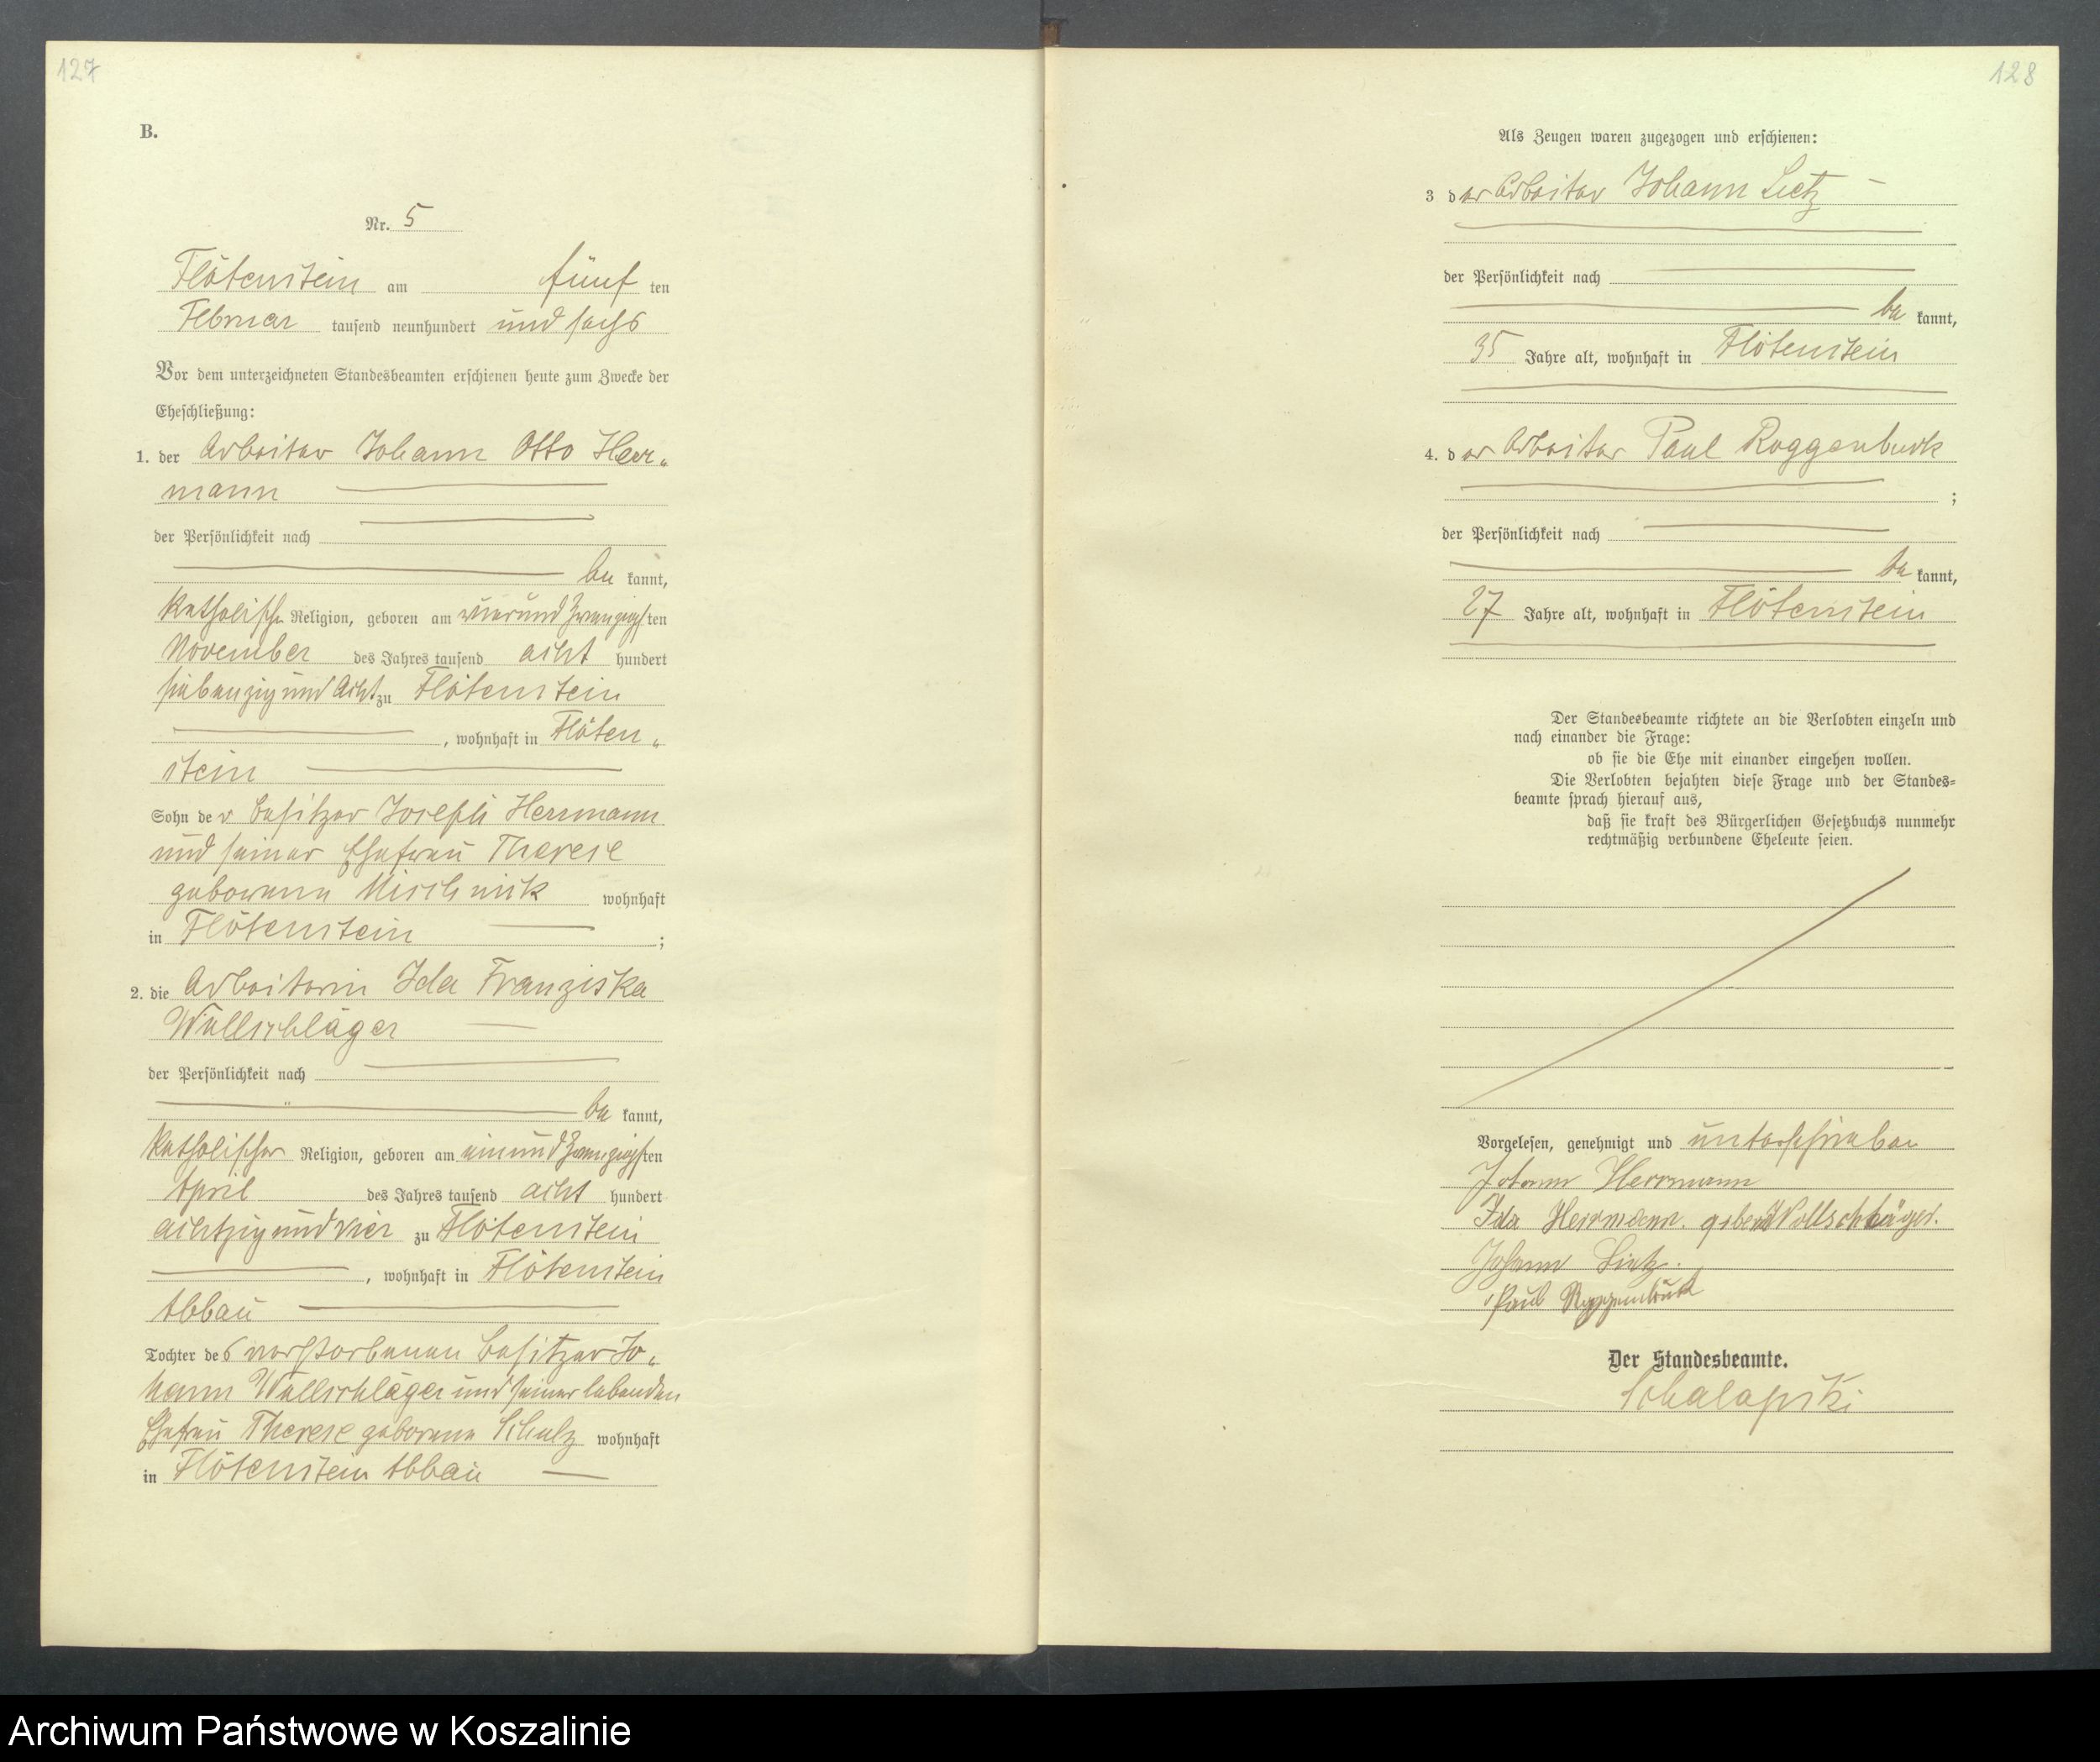 127
B.
Nr. 5
Flötenstein am fünf ten
Februar tausend neunhundert und sechs
Vor dem unterzeichneten Standesbeamten erschienen heute zum Zwecke der
Eheschließung:
1. der Arbeiter Johann Otto Herr„
mann
der Persönlichkeit nach
be kannt,
katholischer Religion, geboren am vierundzwanzigsten
November des Jahres tausend acht hundert
siebenzig und acht zu Flötenstein
, wohnhaft in Flöten„
stein
Sohn der Besitzer Joseph Herrmann
und seiner Ehefrau Therese
geborene wohnhaft
in Flötenstein ;
2. die Arbeiterin Ida Franziska
Wollschläger
der Persönlichkeit nach
be kannt,
katholischer Religion, geboren am einundzwanzigsten
April des Jahres tausend acht hundert
achtzig und vier zu Flötenstein
, wohnhaft in Flötenstein
Abbau
Tochter des verstorbenen Besitzer Jo„
hann Wollschläger und seiner lebenden
Ehefrau Therese geborene Schulz wohnhaft
in Flötenstein Abbau
128
Als Zeugen waren zugezogen und erschienen:
3 der Arbeiter Johann Lietz
der Persönlichkeit nach
be kannt,
35 Jahre alt, wohnhaft in Flötenstein
4. der Arbeiter Paul Roggenbuck
;
der Persönlichkeit nach
be kannt,
27 Jahre alt, wohnhaft in Flötenstein
Der Standesbeamte richtete an die Verlobten einzeln und
nach einander die Frage:
ob sie die Ehe mit einander eingehen wollen.
Die Verlobten bejahten diese Frage und der Standes=
beamte sprach hierauf aus,
daß sie kraft des Bürgerlichen Gesetzbuchs nunmehr
rechtmäßig verbundene Eheleute seien.
Vorgelesen, genehmigt und unterschrieben
Johann Herrmann
Ida Herrmann. geborn Wollschläger.
Johann Lietz.
Paul Roggenbuck
Der Standesbeamte.
Archiwum Państwowe w Koszalinie